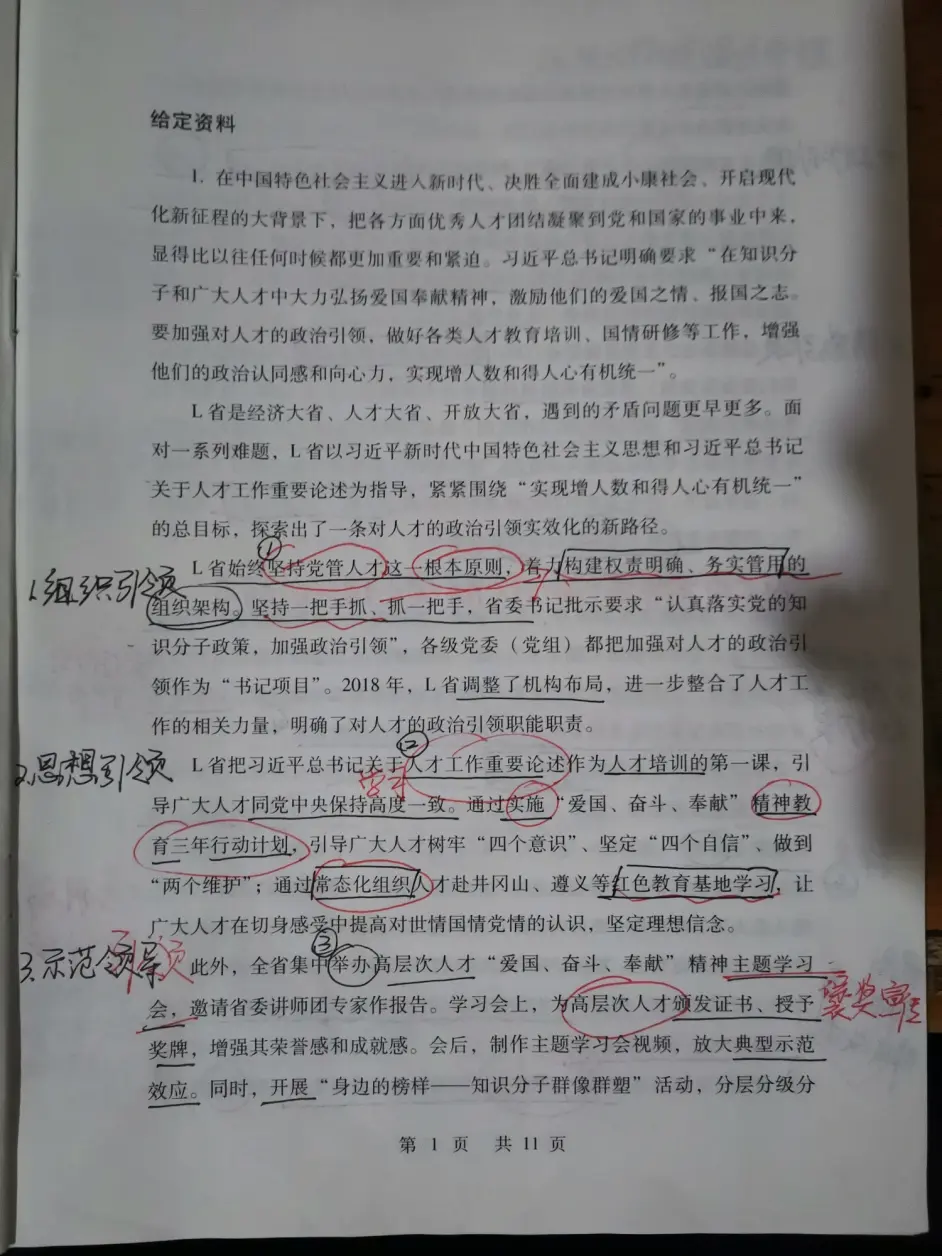 给定资料
1. 在中国特色社会主义进入新时代、决胜全面建成小康社会、开启现代
化新征程的大背景下，把各方面优秀人才团结凝聚到党和国家的事业中来，
显得比以往任何时候都更加重要和紧迫。习近平总书记明确要求“在知识分
子和广大人才中大力弘扬爱国奉献精神，激励他们的爱国之情、报国之志。
要加强对人才的政治引领，做好各类人才教育培训、国情研修等工作，增强
他们的政治认同感和向心力，实现增人数和得人心有机统一”。
L省是经济大省、人才大省、开放大省，遇到的矛盾问题更早更多。面
对一系列难题，L省以习近平新时代中国特色社会主义思想和习近平总书记
关于人才工作重要论述为指导，紧紧围绕“实现增人数和得人心有机统一”
的总目标，探索出了一条对人才的政治引领实效化的新路径。
①
L省始终坚持党管人才这一根本原则，着力构建权责明确、务实管用的
1.组织引领
组织架构。坚持一把手抓、抓一把手，省委书记批示要求“认真落实党的知
识分子政策，加强政治引领”，各级党委（党组）都把加强对人才的政治引
领作为“书记项目”。2018年，L省调整了机构布局，进一步整合了人才工
作的相关力量，明确了对人才的政治引领职能职责。
②
2.思想引领
L省把习近平总书记关于人才工作重要论述作为人才培训的第一课，引
学习
导广大人才同党中央保持高度一致。通过实施“爱国、奋斗、奉献”精神教
育三年行动计划，引导广大人才树牢“四个意识”、坚定“四个自信”、做到
“两个维护”；通过常态化组织人才赴井冈山、遵义等红色教育基地学习，让
广大人才在切身感受中提高对世情国情党情的认识，坚定理想信念。
③
3.示范领导
引领
此外，全省集中举办高层次人才“爱国、奋斗、奉献”精神主题学习
会，邀请省委讲师团专家作报告。学习会上，为高层次人才颁发证书、授予
褒奖
奖牌，增强其荣誉感和成就感。会后，制作主题学习会视频，放大典型示范
效应。同时，开展“身边的榜样——知识分子群像群塑”活动，分层分级分
第 1 页 共 11 页